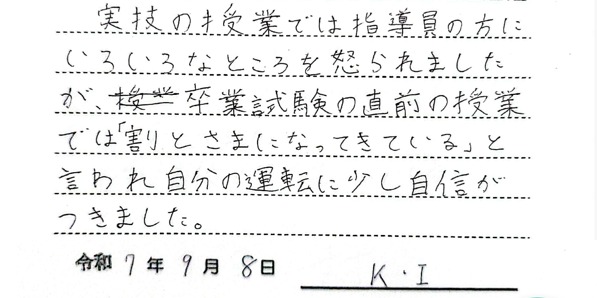 実技の授業では指導員の方に
いろいろなところを怒られました
が、卒業試験の直前の授業
では「割とさまになってきている」と
言われ自分の運転に少し自信が
つきました。
令和 7 年 9 月 8 日 K.I